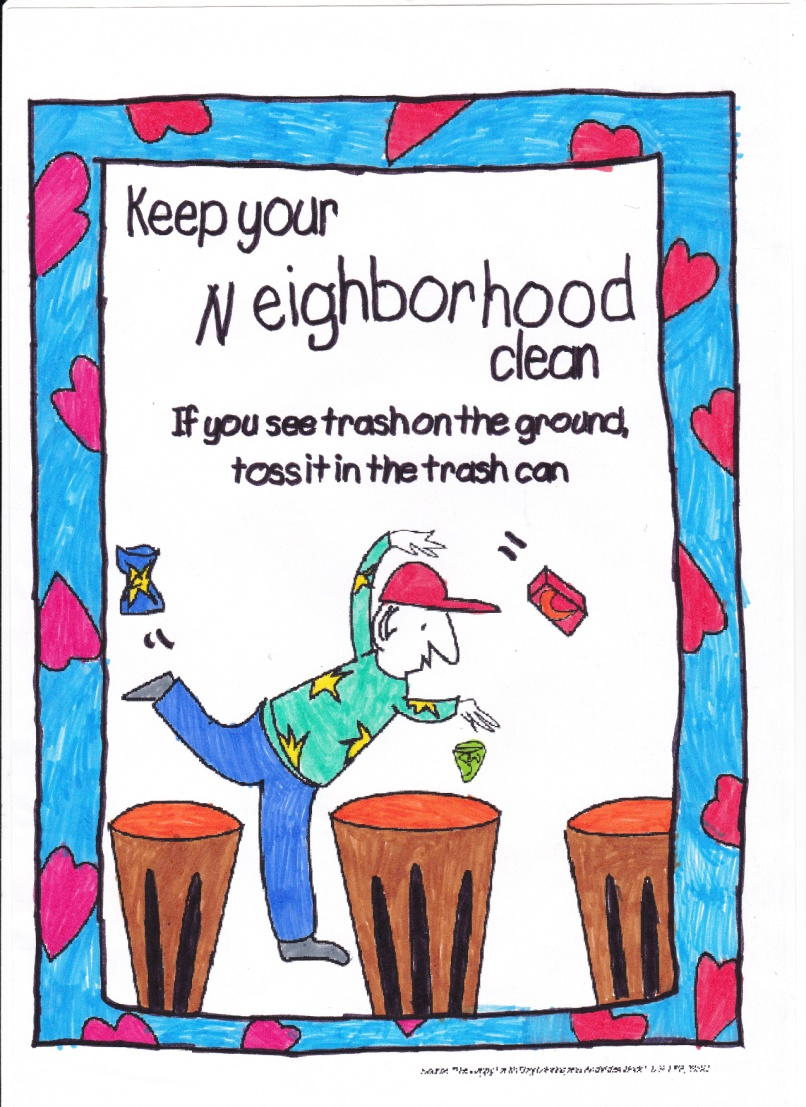 Keep your
Neighborhood
clean
If you see trash on the ground,
toss it in the trash can